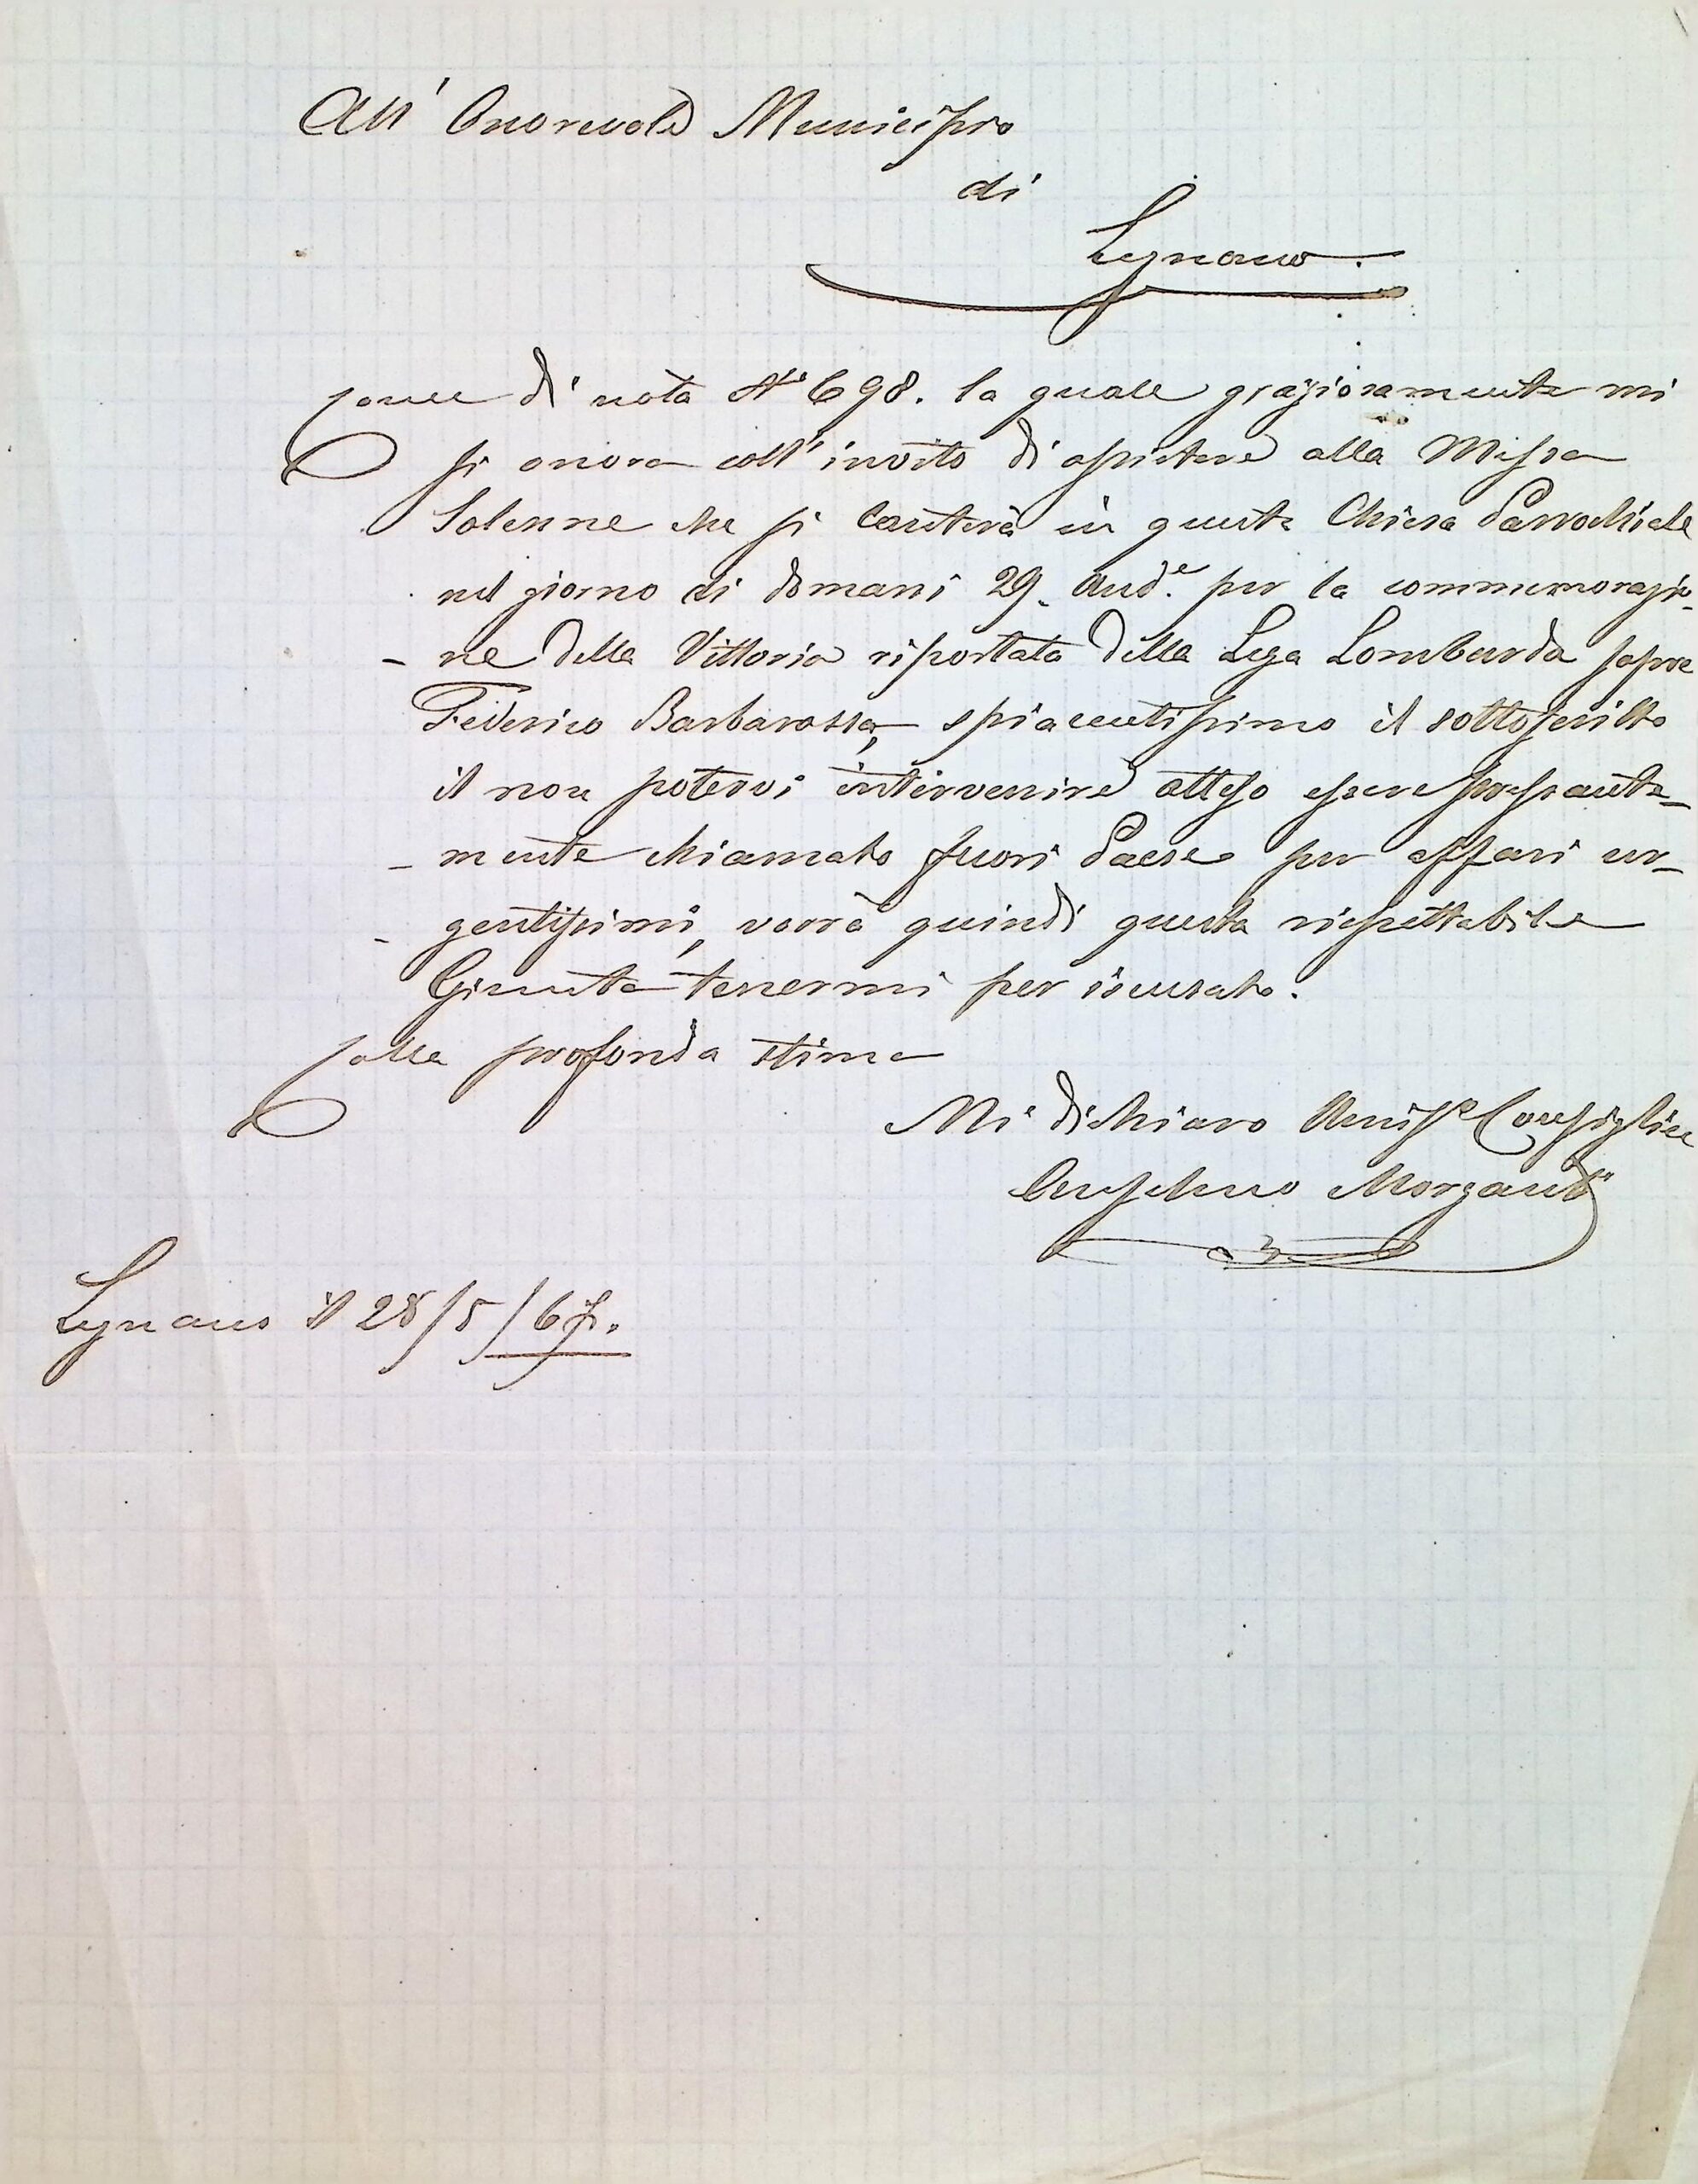 All' Onorevole Municipio
di
Legnano.
di nota N° 698. la quale graziosamente mi
si onora coll'invito di assistere alla Messa
Solenne che si canterà in questa Chiesa Parrochiale
nel giorno di domani 29. And.e per la commemorazio-
- ne della Vittoria riportata della Lega Lombarda sopra
Federico Barbarossa, spiacentissimo il sottoscritto
il non potervi intervenire atteso essere pressante-
- mente chiamato fuori Paese per affari ur-
- gentissimi, vorrà quindi questa rispettabile
Giunta tenermi per iscusato.
Colla profonda stima
Mi dichiaro Consigliere
Anselmo Morganti
Legnano il 28/5/67.